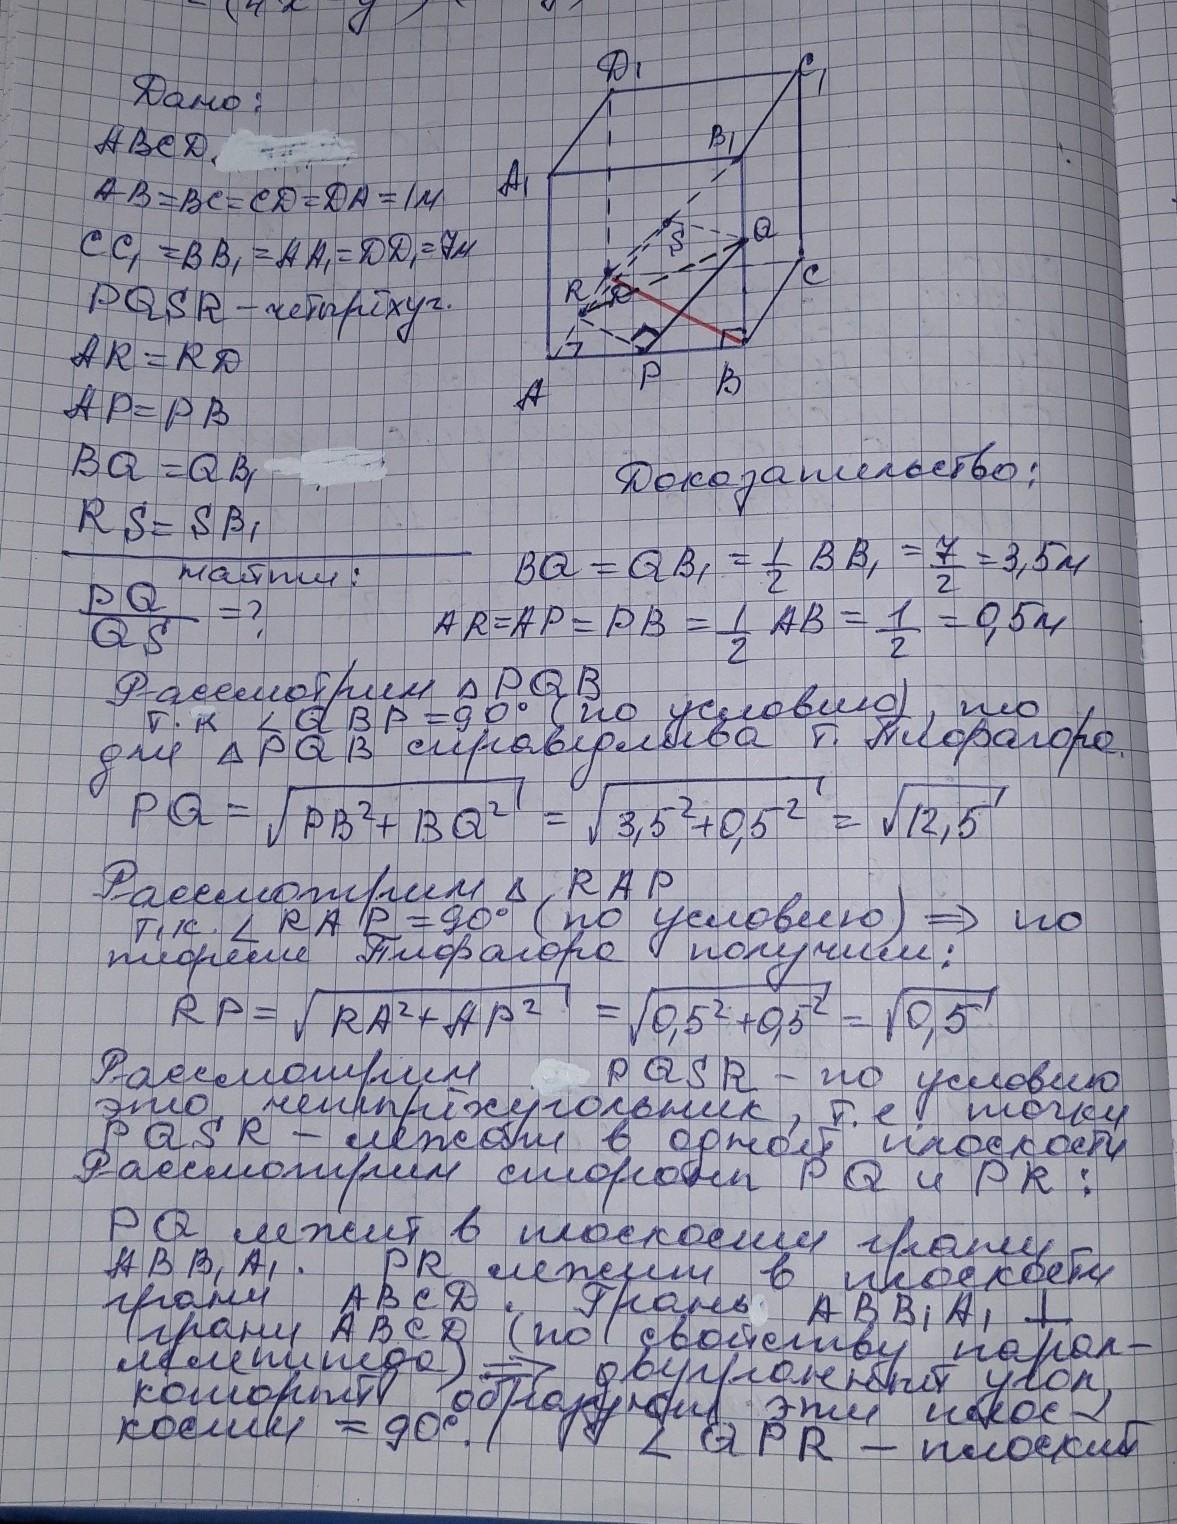 Дано:
ABCD.
AB=BC=CD=DA=1м
CC₁=BB₁=AA₁=DD₁=7м
PQSR – четырёхуг.
AR=RD
AP=PB
BQ=QB₁
RS=SB₁
найти:
PQ/QS=?
D₁
C₁
B₁
A₁
S
Q
R
D
C
A
P
B
Доказательство:
BQ=QB₁=1/2 BB₁=7/2=3,5м
AR=AP=PB=1/2 AB=1/2=0,5м
Рассмотрим △PQB
т.к ∠QBP=90° (по условию), то
для △PQB справедлива т. Пифагора.
PQ=√(PB²+BQ²)=√(3,5²+0,5²)=√12,5
Рассмотрим △ RAP
т.к. ∠RAP=90° (по условию) ⇒ по
теореме Пифагора получим:
RP=√(RA²+AP²)=√(0,5²+0,5²)=√0,5
Рассмотрим PQSR – по условию
это четырёхугольник, т.е точки
PQSR – лежат в одной плоскости
Рассмотрим стороны PQ и PR:
PQ лежит в плоскости грани
ABB₁A₁. PR лежит в плоскости
грани ABCD. Грань ABB₁A₁ ⊥
грани ABCD (по свойству парал-
лелепипеда) ⇒ двугранный угол,
который образуют эти плос-
кости =90°. ∠QPR – плоский